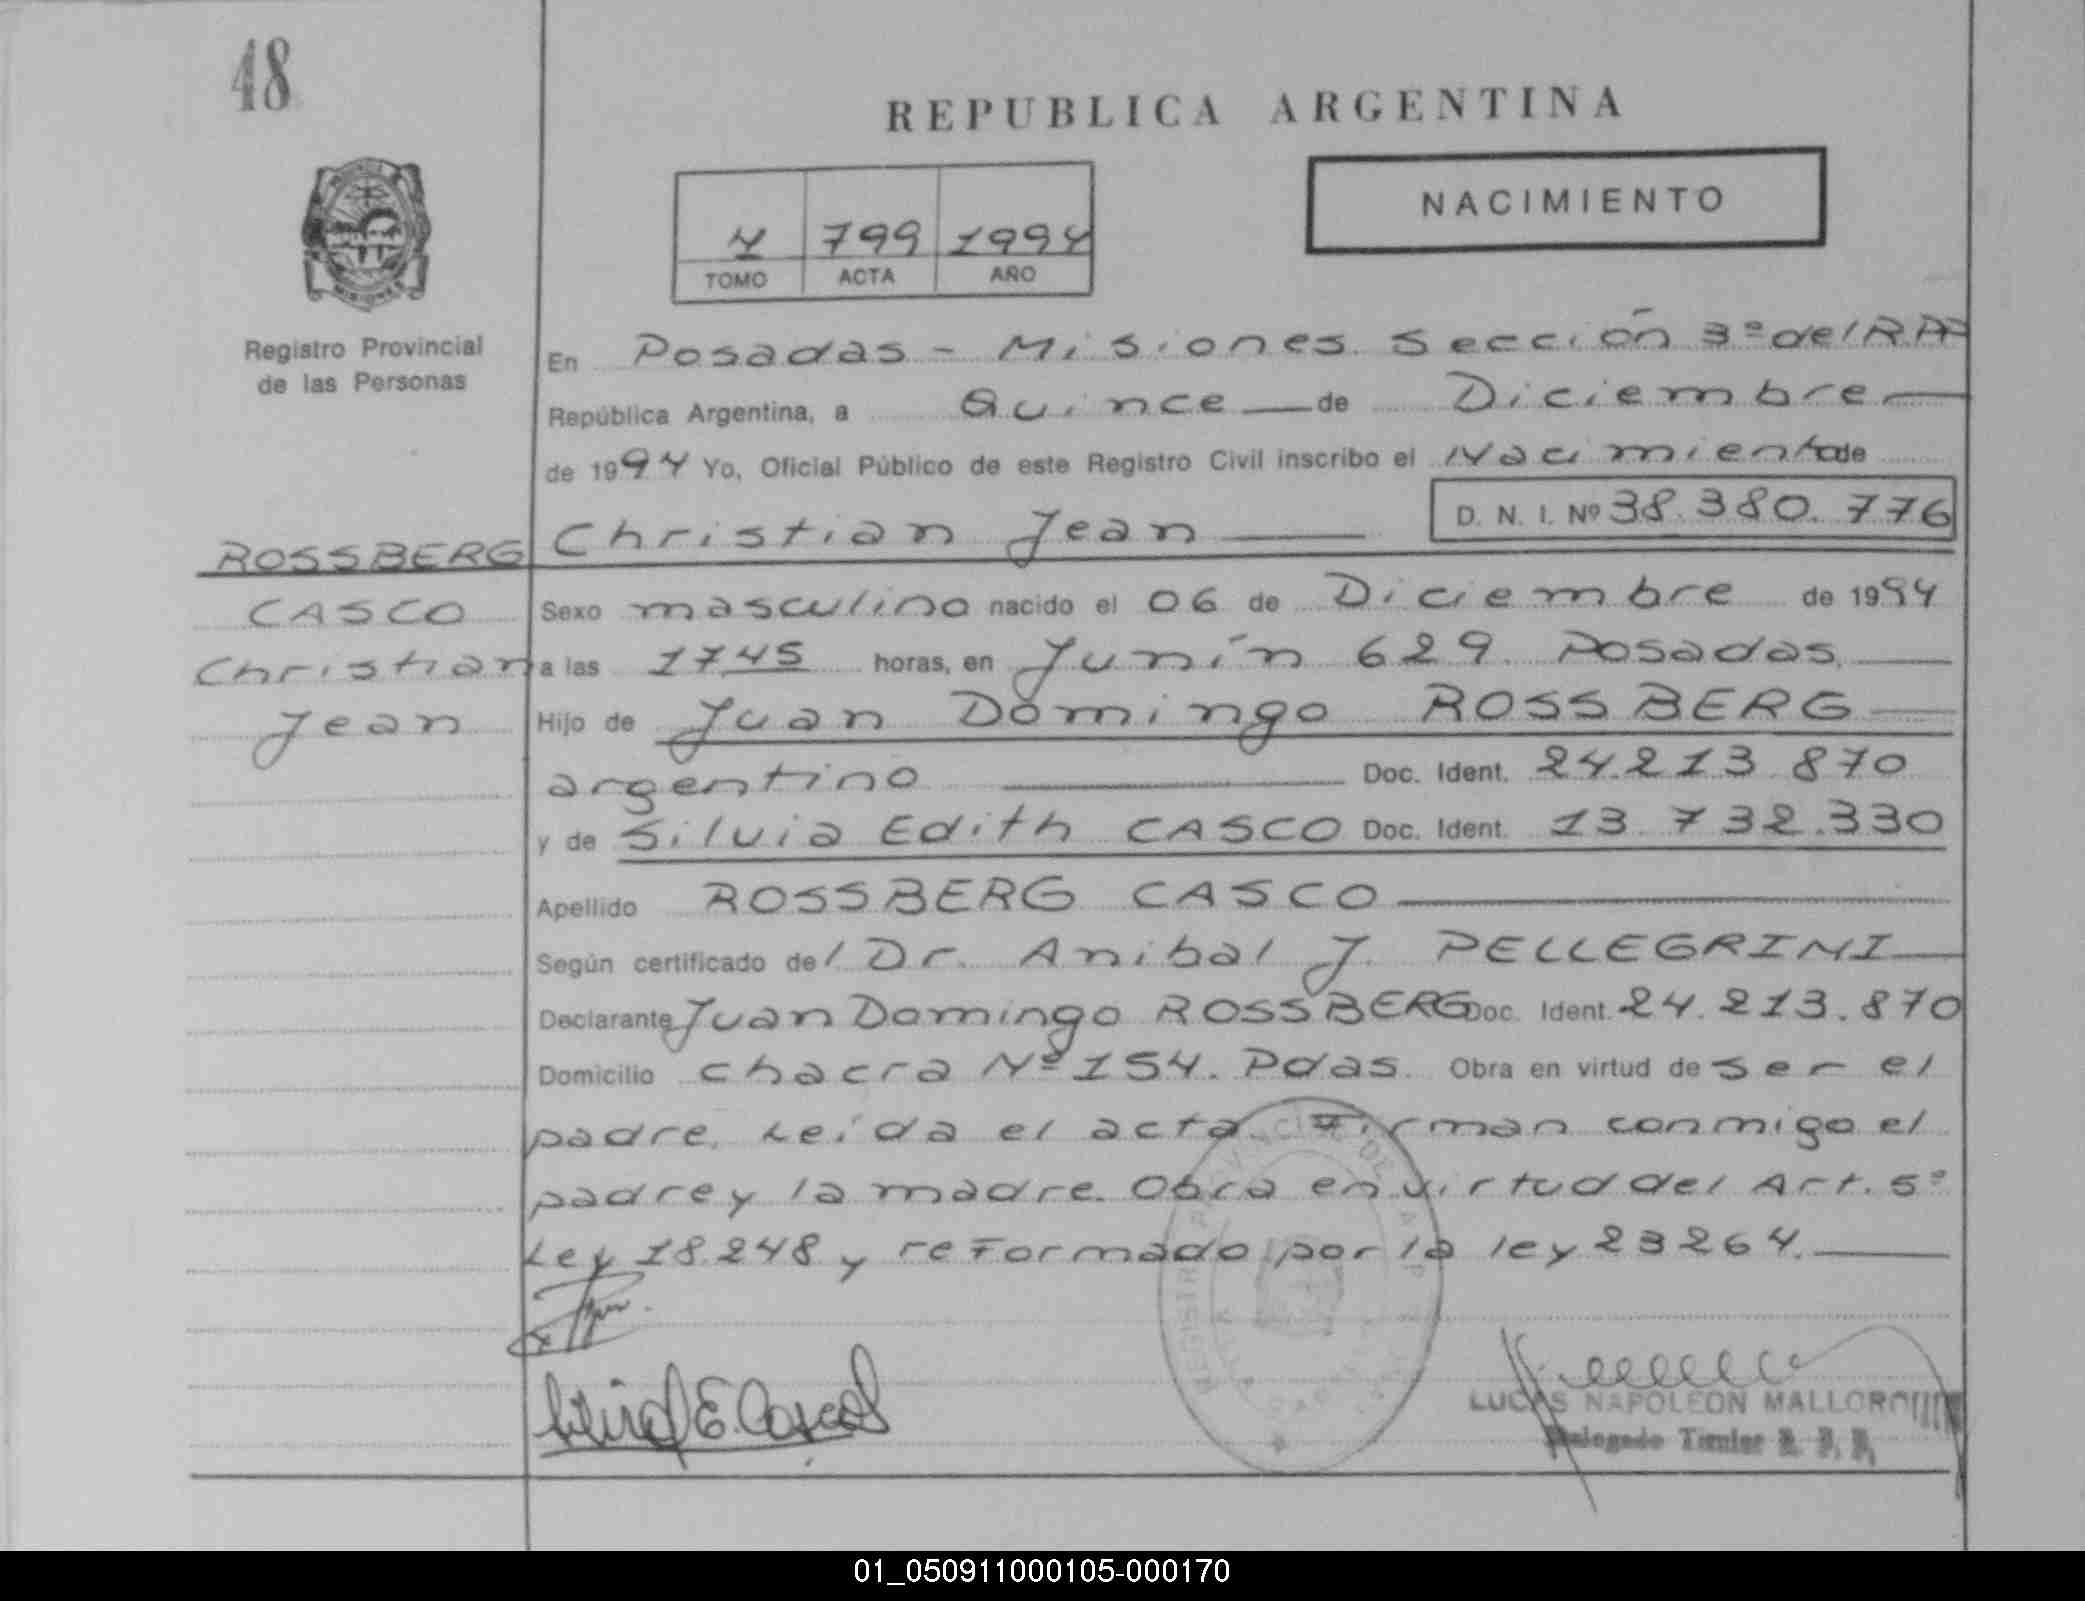 48
REPUBLICA ARGENTINA
NACIMIENTO
4 799 1994
TOMO ACTA AÑO
Registro Provincial
de las Personas
MISIONES
En Posadas - Misiones Sección 3º del R.P.P
República Argentina, a Quince de Diciembre
de 1994 Yo, Oficial Público de este Registro Civil inscribo el Nacimiento de
D. N. I. Nº 38.380.776
Christian Jean
ROSSBERG
CASCO
Christian
Jean
Sexo masculino nacido el 06 de Diciembre de 1994
a las 17.45 horas, en Junín 629. Posadas.
Hijo de Juan Domingo ROSSBERG
argentino Doc. Ident. 24.213.870
y de Silvia Edith CASCO Doc. Ident. 13.732.330
Apellido ROSSBERG CASCO
Según certificado del Dr. Anibal J. PELLEGRINI
Declarante Juan Domingo ROSSBERG Doc. Ident. 24.213.870
Domicilio chacra Nº 154. Pdas. Obra en virtud de ser el
padre. Leída el acta Firman conmigo el
padre y la madre. Obra en virtud del Art. 5º
Ley 18.248 y reformado por la ley 23264.
Silvia E. Casco
LUCAS NAPOLEON MALLOR
Delegado Titular R. P. P.
01_050911000105-000170